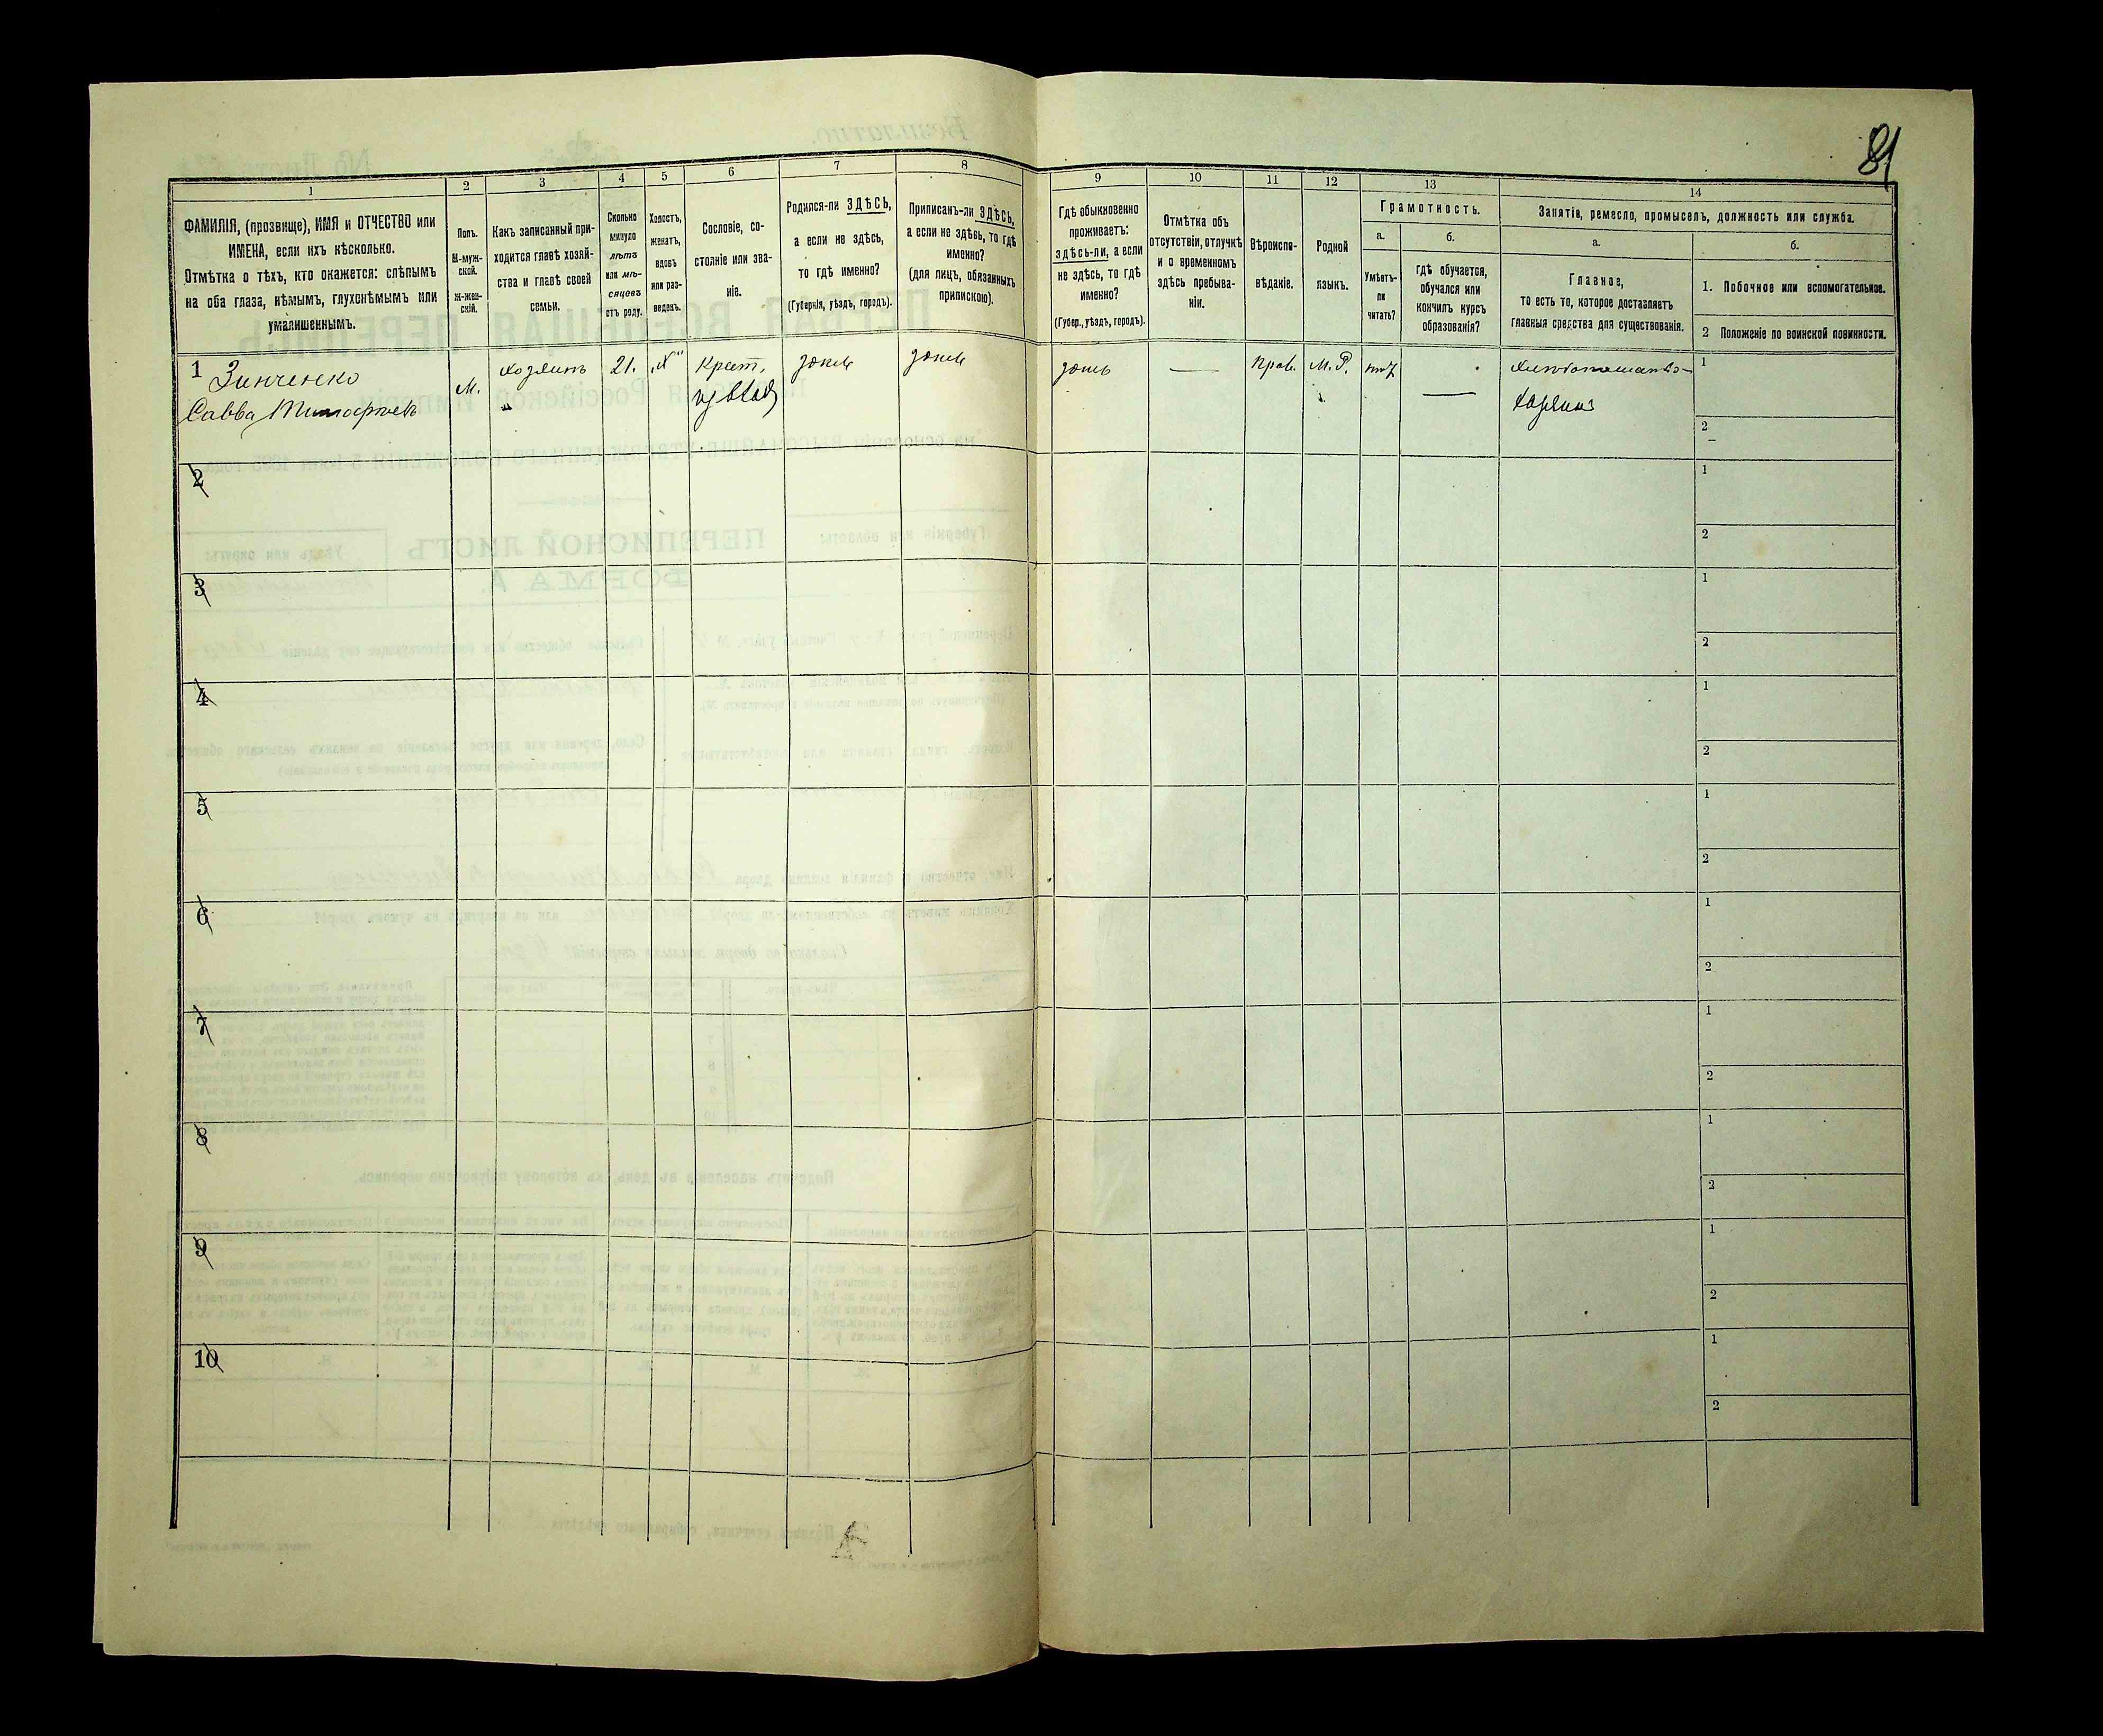 81
1
2
3
4
5
6
7
8
9
10
11
12
13
14
ФАМИЛІЯ, (прозвище), ИМЯ и ОТЧЕСТВО или
ИМЕНА, если ихъ нѣсколько.
Отмѣтка о тѣхъ, кто окажется: слѣпымъ
на оба глаза, нѣмымъ, глухонѣмымъ или
умалишеннымъ.
Полъ.
М-муж-
ской.
Ж-жен-
скій.
Какъ записанный при-
ходится главѣ хозяй-
ства и главѣ своей
семьи.
Сколько
минуло
лѣтъ
или мѣ-
сяцевъ
отъ роду.
Холостъ,
женатъ,
вдовъ
или раз-
веденъ.
Сословіе, со-
стояніе или зва-
ніе.
Родился-ли ЗДѢСЬ,
а если не здѣсь,
то гдѣ именно?
(Губернія, уѣздъ, городъ).
Приписанъ-ли ЗДѢСЬ,
а если не здѣсь, то гдѣ
именно?
(для лицъ, обязанныхъ
припискою).
Гдѣ обыкновенно
проживаетъ:
здѣсь-ли, а если
не здѣсь, то гдѣ
именно?
(Губер., уѣздъ, городъ).
Отмѣтка объ
отсутствіи, отлучкѣ
и о временномъ
здѣсь пребыва-
ніи.
Вѣроиспо-
вѣданіе.
Родной
языкъ.
Грамотность.
а.
б.
Умѣетъ-
ли
читать?
гдѣ обучается,
обучался или
кончилъ курсъ
образованія?
Занятіе, ремесло, промыселъ, должность или служба.
а.
б.
Главное,
то есть то, которое доставляетъ
главныя средства для существованія.
1. Побочное или вспомогательное.
2 Положеніе по воинской повинности.
1 Зинченко
Савва Тимофеевъ
М.
хозяинъ
21.
Х
Крест.
изъ влад
здѣсь
здѣсь
здѣсь
—
Прав.
М. Р.
нѣт
—
хозяинъ
1
2
–
2
1
2
3
1
2
4
1
2
5
1
2
6
1
2
7
1
2
8
1
2
9
1
2
10
1
2